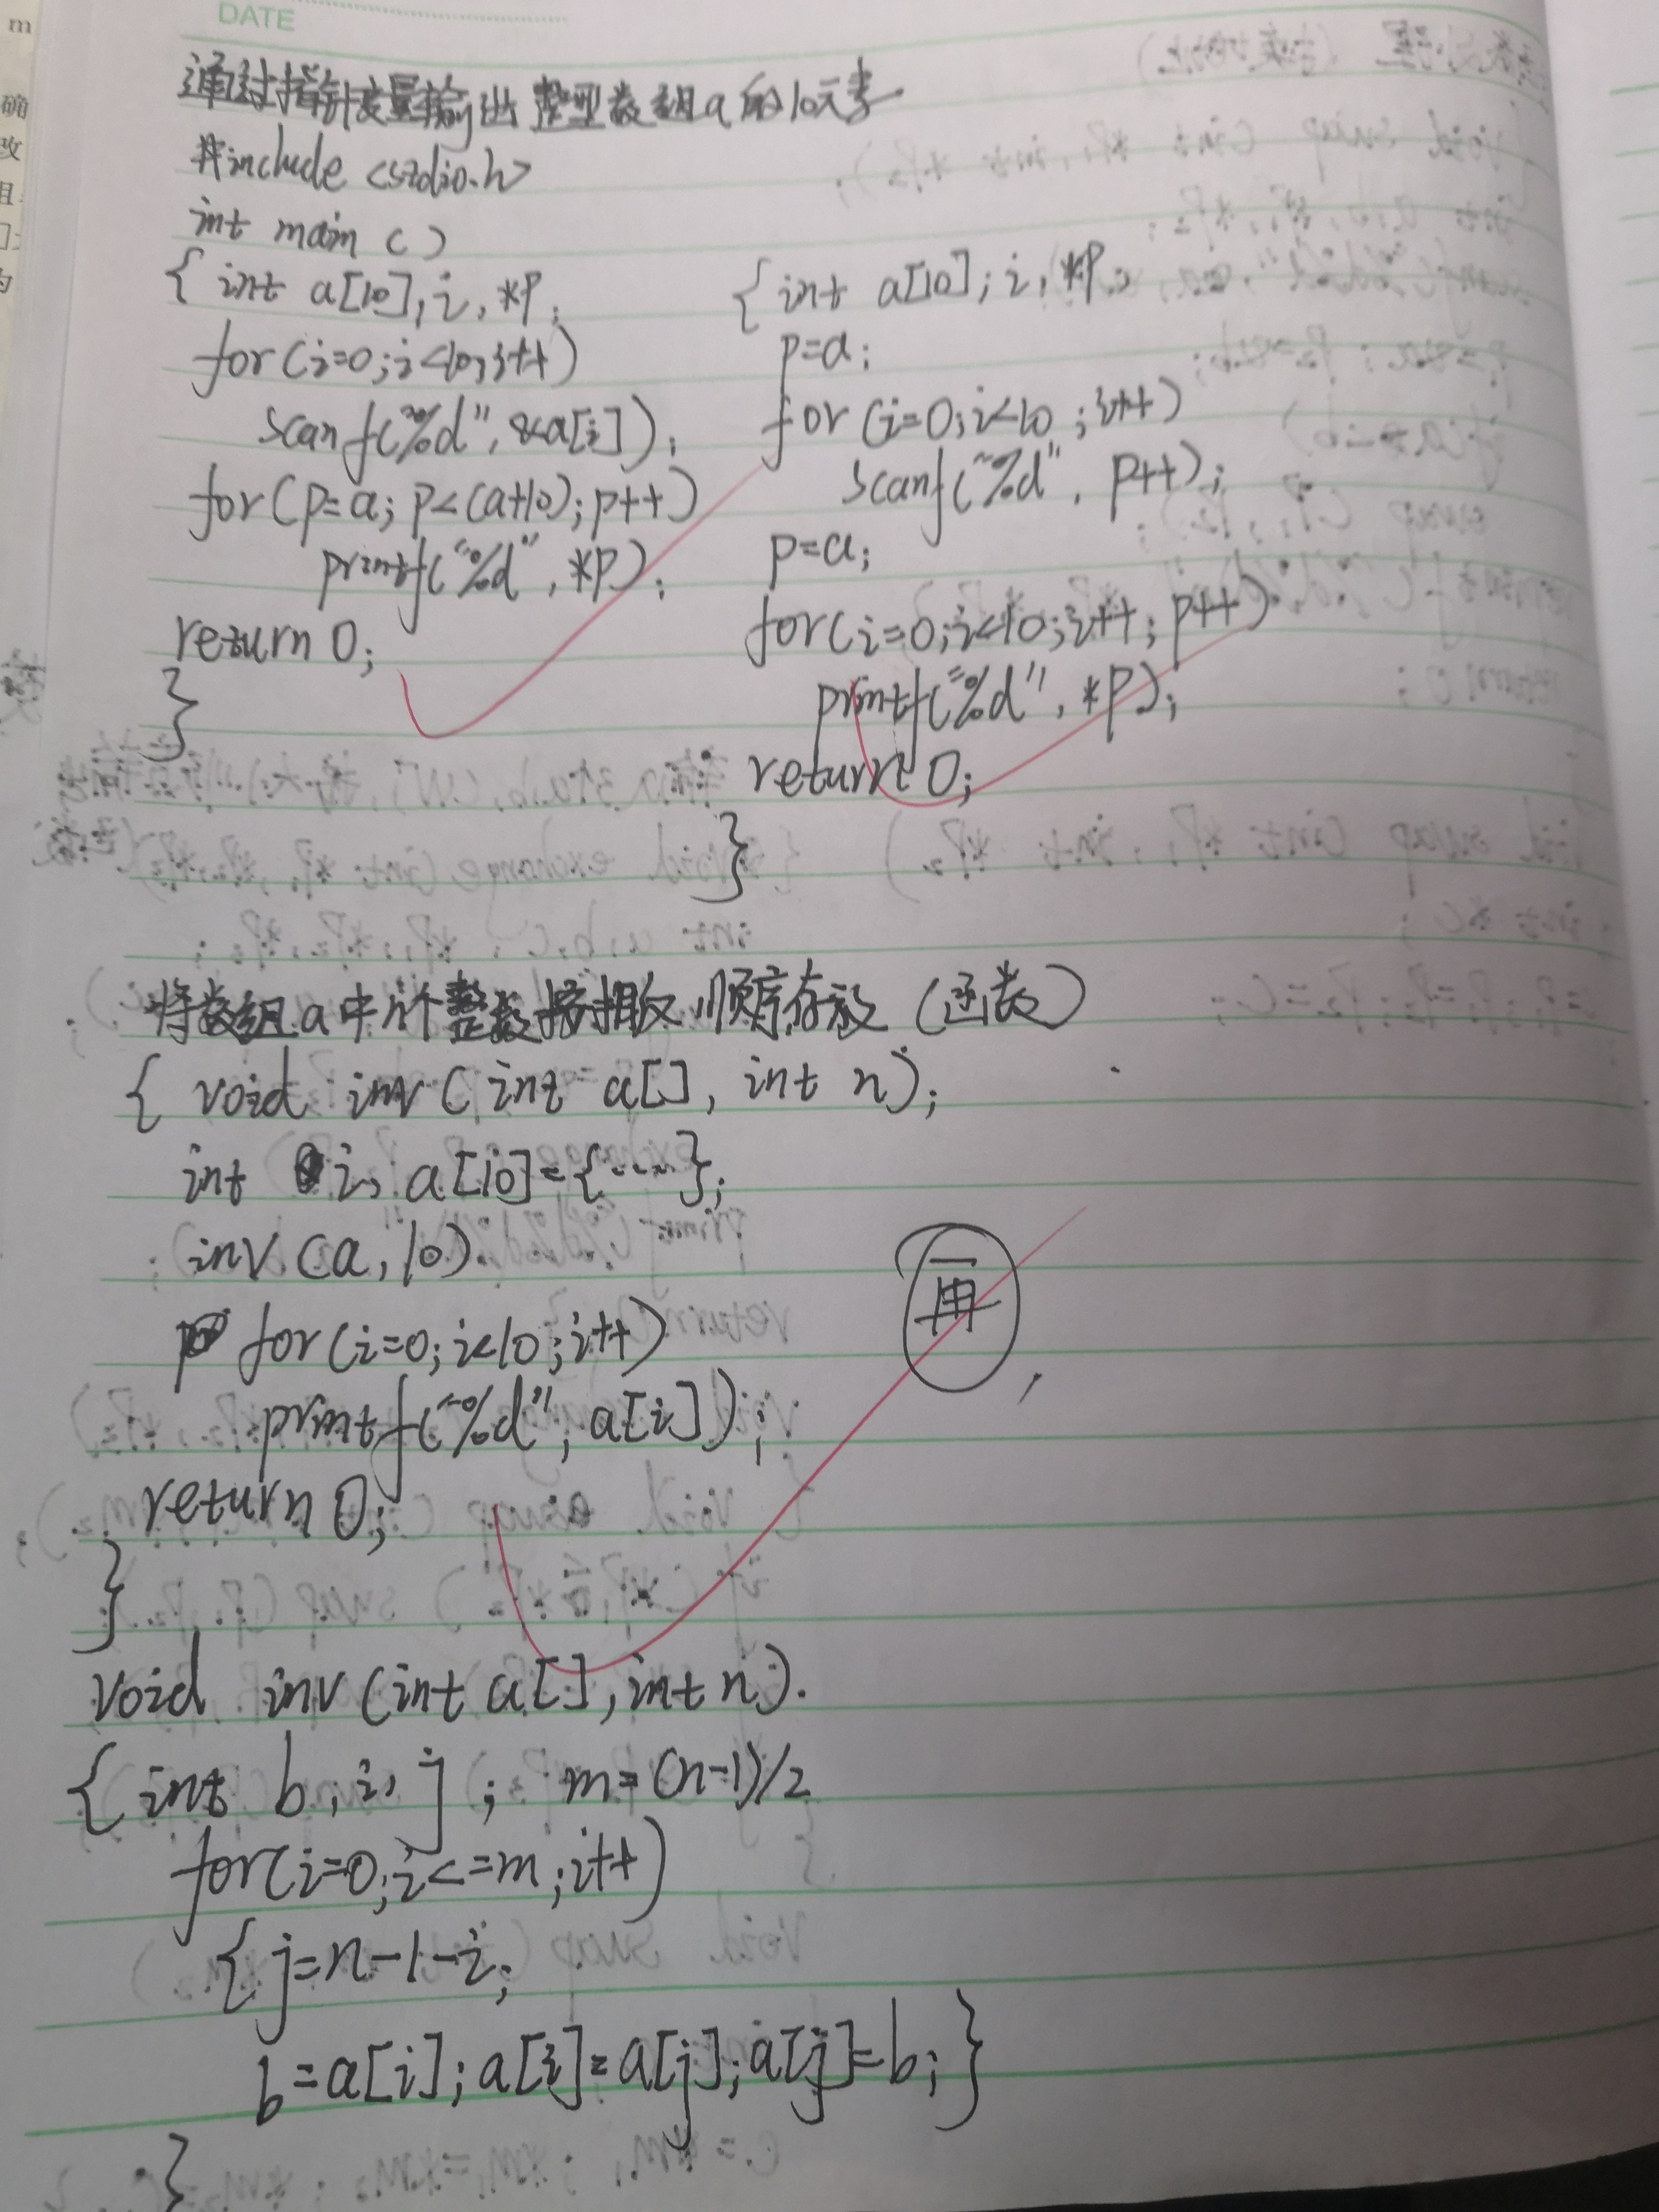 DATE
通过指针变量输出整型数组a的10元素
#include <stdio.h>
int main ()
{ int a[10], i, *p;
for (i=0; i<10; i++)
scanf("%d", &a[i]);
for (p=a; p<(a+10); p++)
printf("%d", *p);
return 0;
}
{ int a[10]; i, *p;
p=a;
for (i=0; i<10; i++)
scanf("%d", p++);
p=a;
for (i=0; i<10; i++; p++)
printf("%d", *p);
return 0;
}
将数组a中n个整数按相反顺序存放 (函数)
{ void inv (int a[], int n);
int i, a[10]={····};
inv (a, 10).
for (i=0; i<10; i++)
printf("%d"; a[i]);
return 0;
}
再
void inv (int a[], int n).
{ int b, i, j; m=(n-1)/2
for (i=0; i<=m; i++)
{ j=n-1-i;
b=a[i]; a[i]=a[j]; a[j]=b; }
}